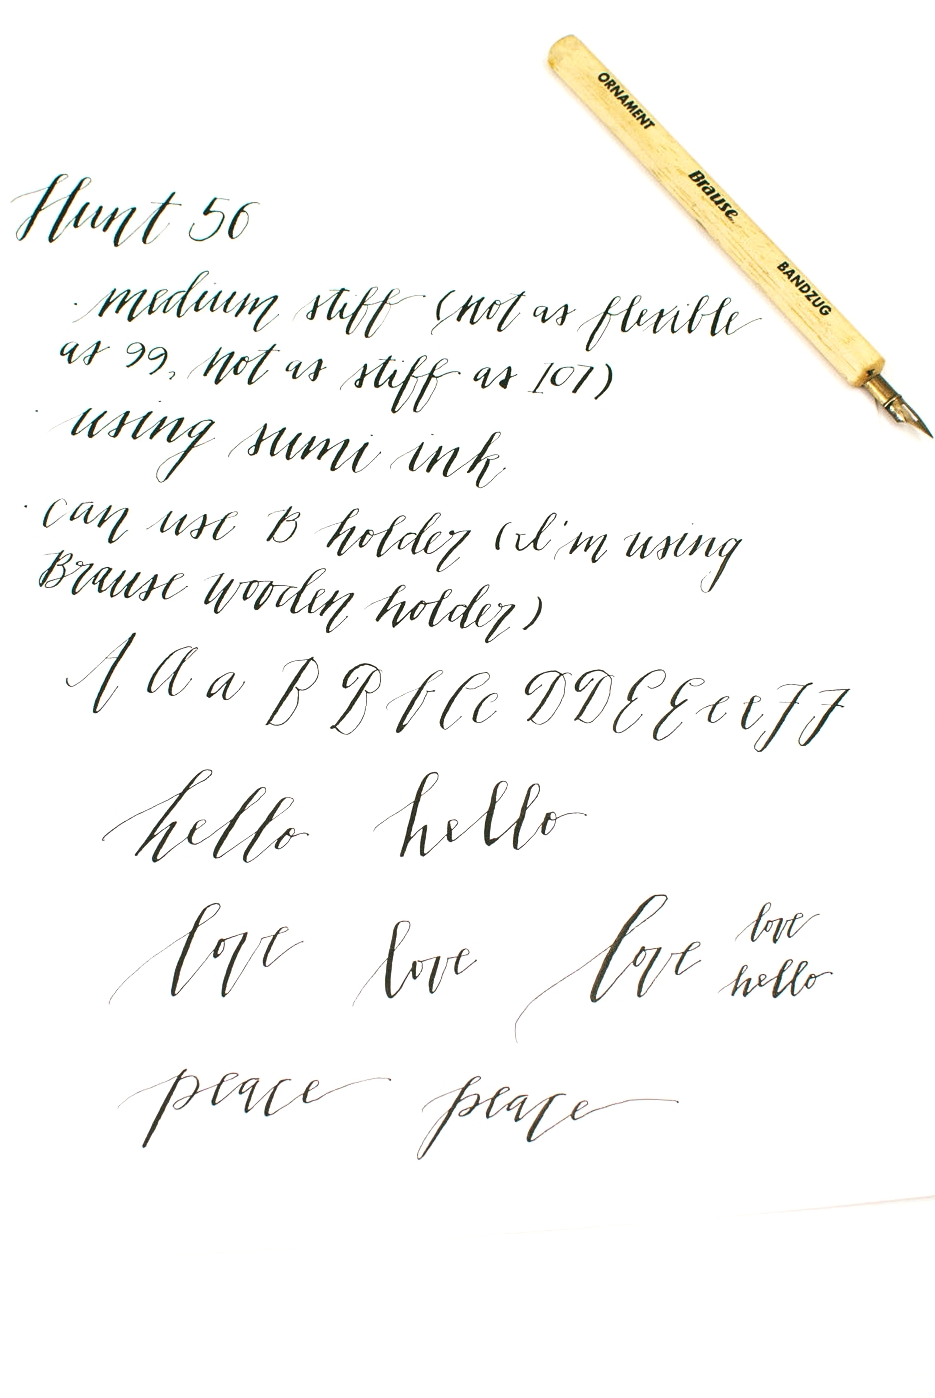 ORNAMENT
Brause
BANDZUG
Hunt 56
· medium stiff (not as flexible
as 99, not as stiff as 107)
· using sumi ink
· can use B holder (I'm using
Brause wooden holder)
A a a B B b C c D D E E e e F F
hello hello
love love love love
hello
peace peace